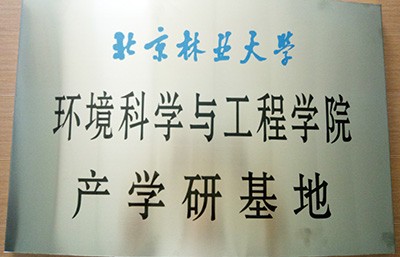 北京林业大学
环境科学与工程学院
产学研基地